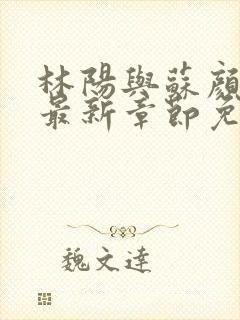 林陽與蘇顏
最新章節免
魏文達